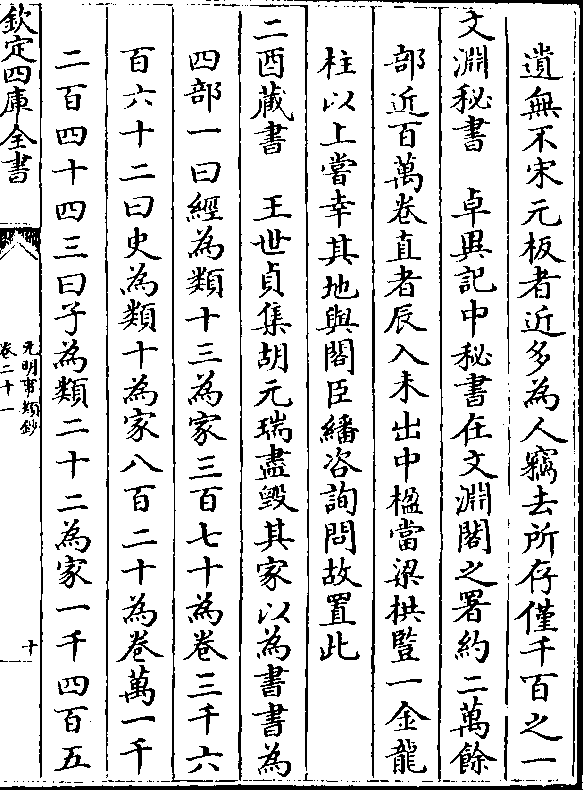 遺無不宋元板者近多為人竊去所存僅千百之一
文淵秘書　卓異記中秘書在文淵閣之署約二萬餘
部近百萬卷直者辰入未出中楹當梁栱豎一金龍
柱以上嘗幸其地與閣臣繙咨詢問故置此
二酉藏書　王世貞集胡元瑞盡毀其家以為書書為
四部一曰經為類十三為家三百七十為卷三千六
百六十二曰史為類十為家八百二十為卷萬一千
二百四十四三曰子為類二十二為家一千四百五
欽定四庫全書
元明事類鈔
卷二十一
十